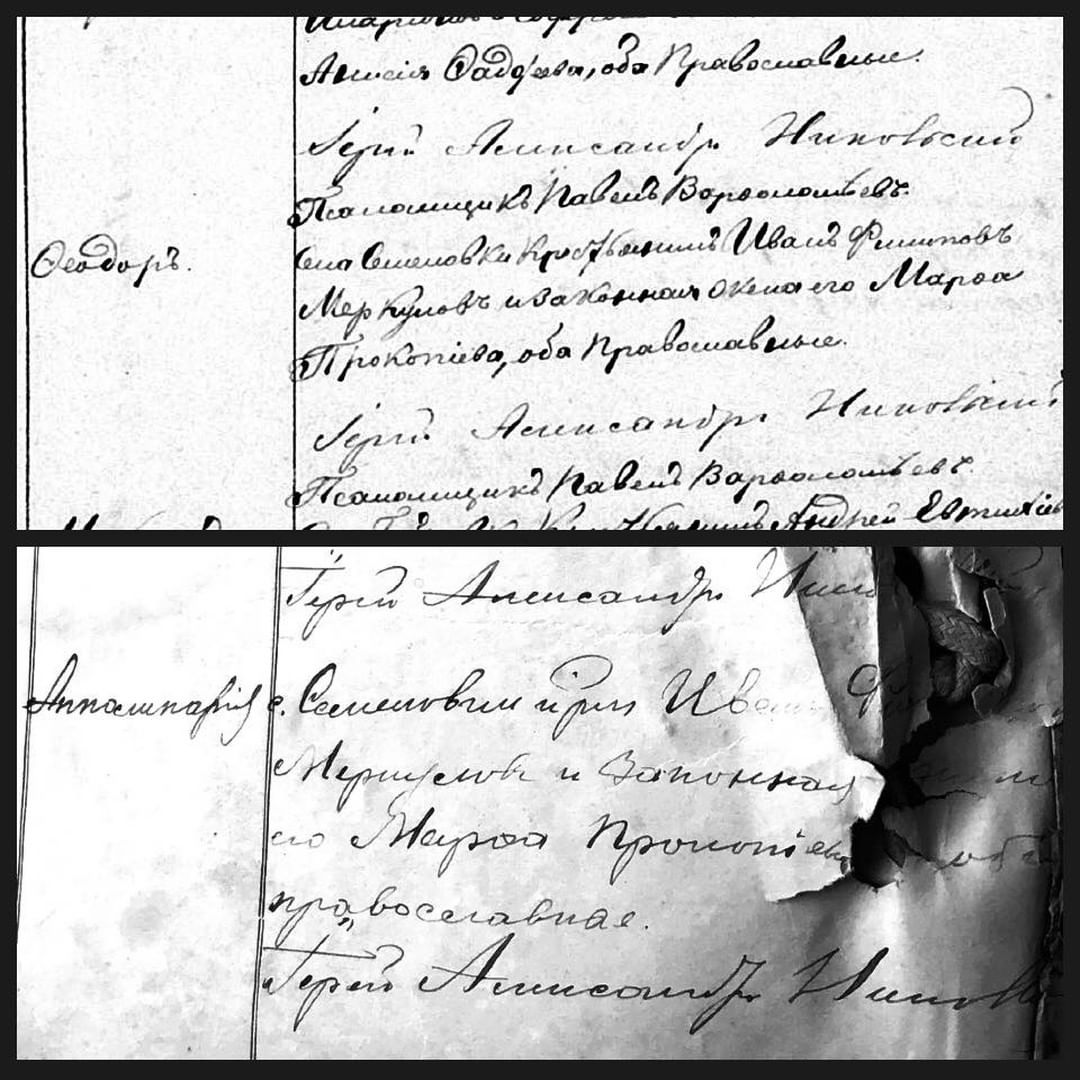 Анисія Фадѣева, оба Православные.
Іерей Александръ Никольскій
Псаломщикъ Павелъ Варѳоломѣевъ.
Ѳеодоръ.
Села Семеновки Крестьянинъ Иванъ Филиповъ
Меркуловъ и законная жена его Марѳа
Прокопіева, оба Православные.
Іерей Александръ Никольскій
Псаломщикъ Павелъ Варѳоломѣевъ
Андрей Евтихіев
Іерей Александръ
Апполинарій
с. Семеновки кр-нъ Иван
Меркуловъ и Законная
его Марѳа Прокопіев
православные.
Іерей Александръ Николь